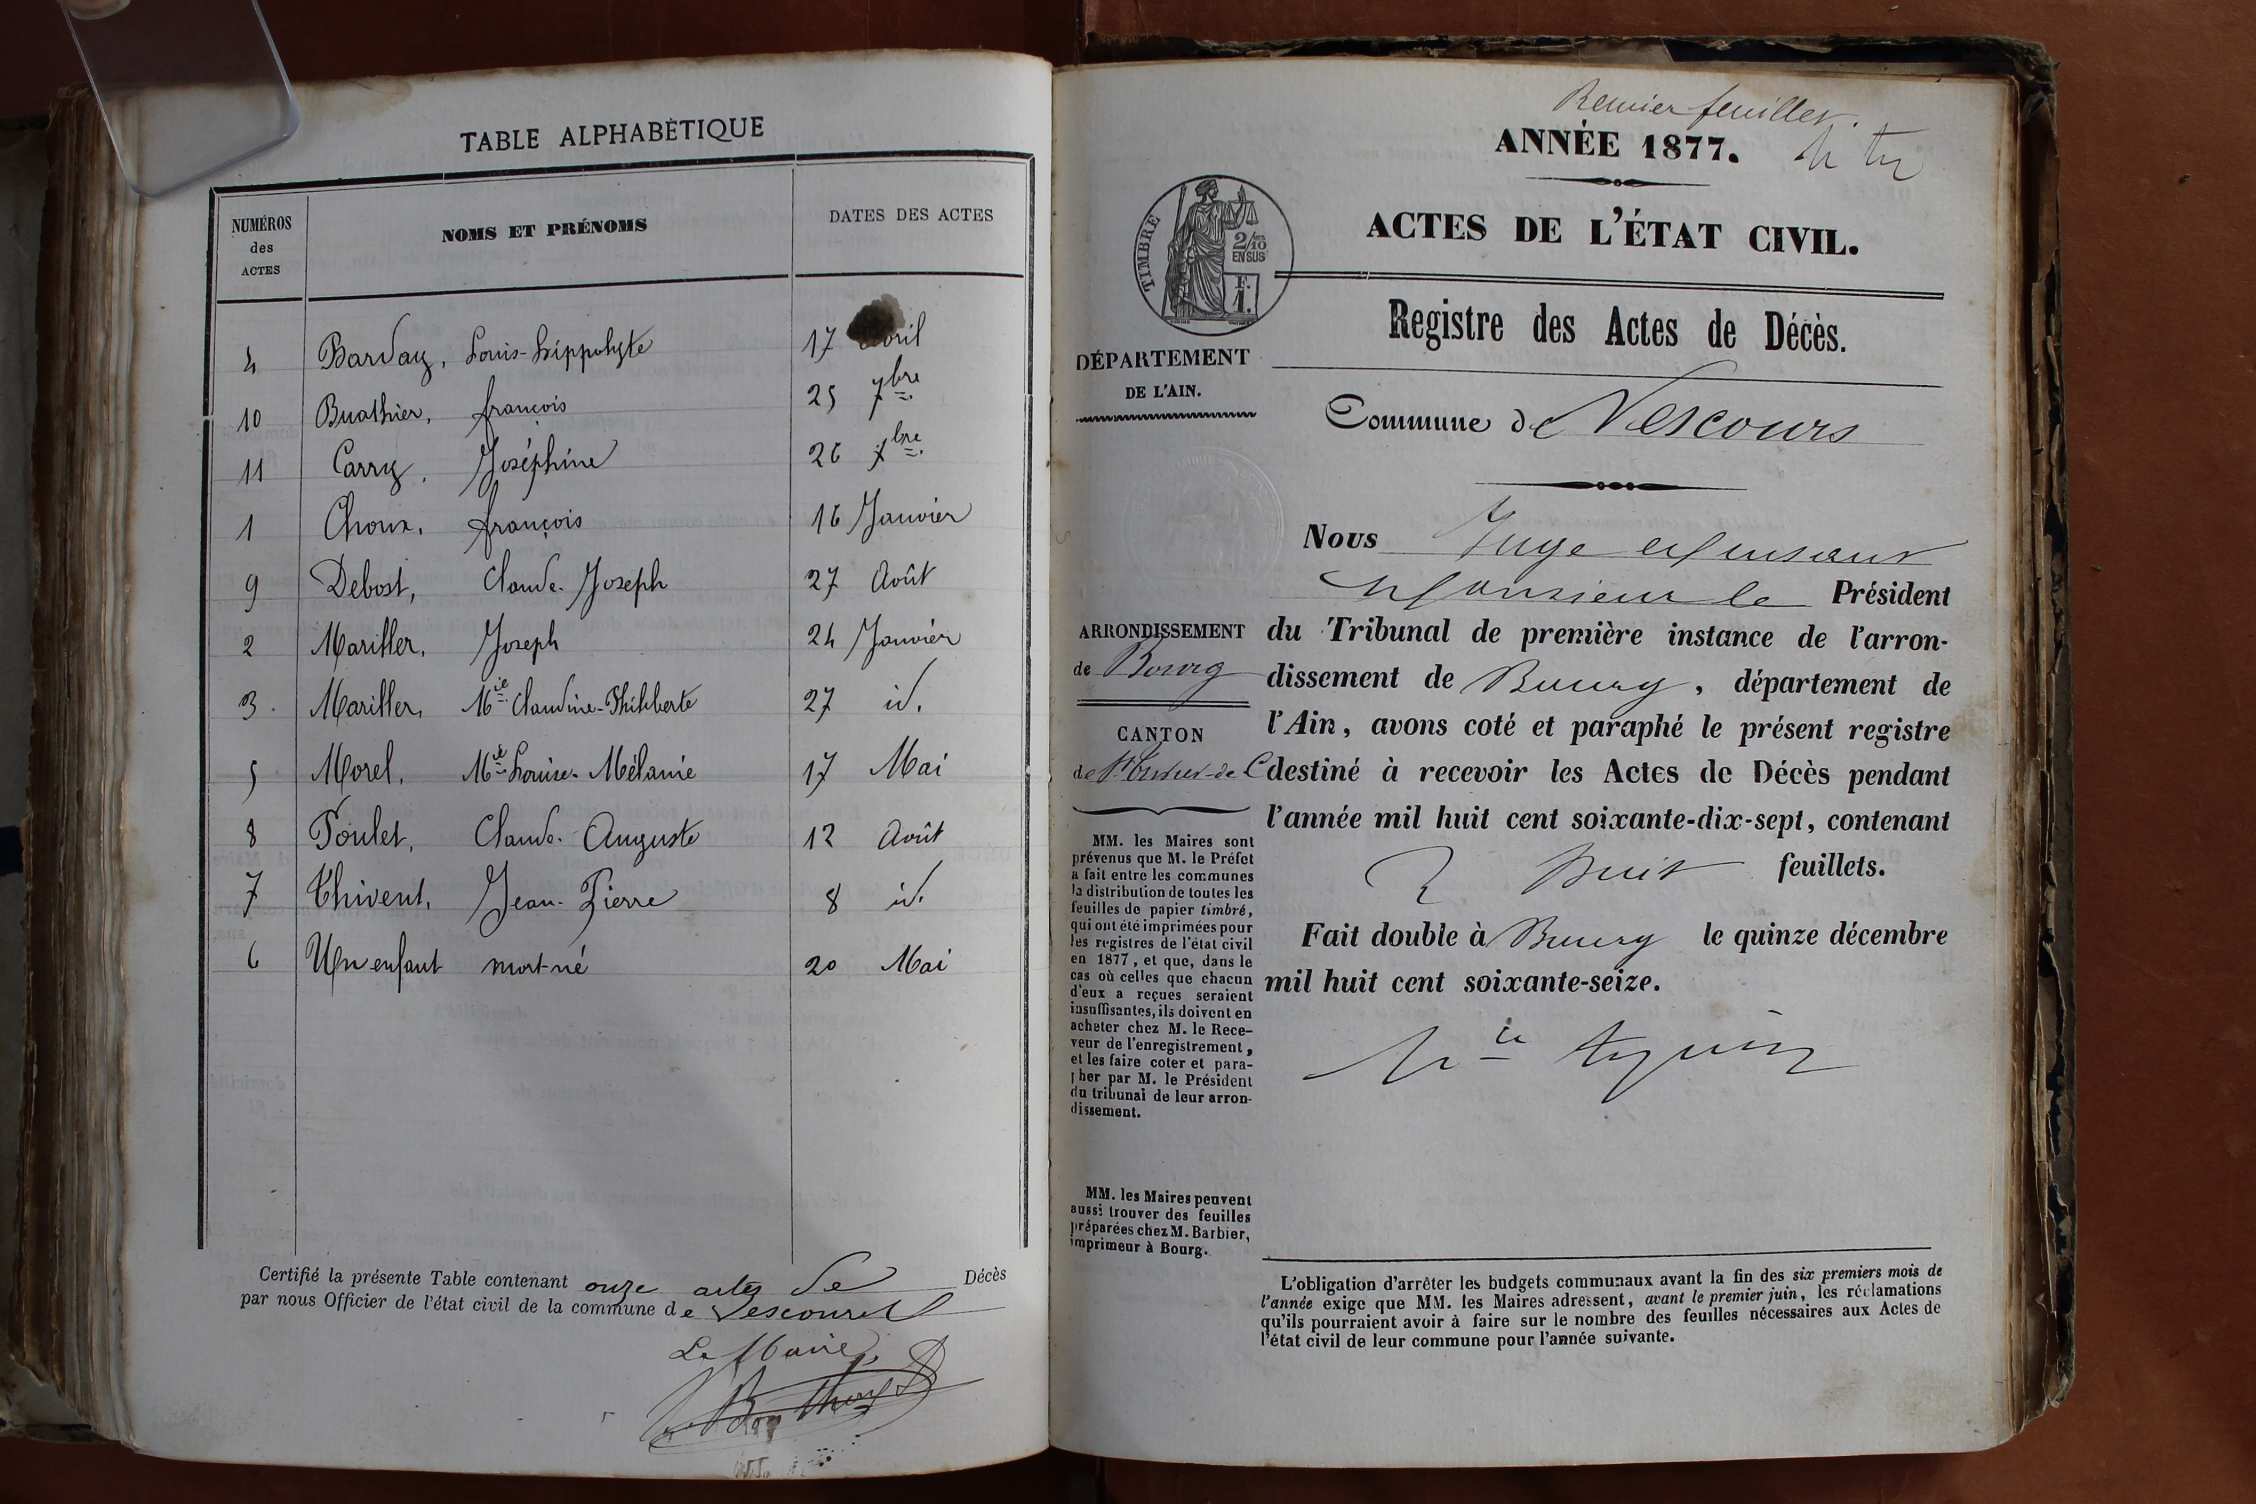 TABLE ALPHABÉTIQUE
NUMÉROS des ACTES
NOMS ET PRÉNOMS
DATES DES ACTES
4 Barday, Louis-Hippolyte 17 avril
10 Buathier, françois 25 7bre
11 Carry, Joséphine 26 xbre
1 Choux, françois 16 Janvier
9 Debost, Claude-Joseph 27 Août
2 Mariller, Joseph 24 Janvier
3 Mariller, Mie Claudine-Philiberte 27 id.
5 Morel, Mie Louise-Mélanie 17 Mai
8 Poulet, Claude-Auguste 12 Août
7 Thivent, Jean-Pierre 8 id.
6 Un enfant mort-né 20 Mai
Certifié la présente Table contenant onze actes de Décès
par nous Officier de l'état civil de la commune de Vescours
Le Maire,
Premier feuillet.
ANNÉE 1877.
ACTES DE L'ÉTAT CIVIL.
TIMBRE
2/10 EN SUS
F. 1.
Registre des Actes de Décès.
DÉPARTEMENT
DE L'AIN.
Commune de Vescours
Nous Juge
Monsieur le Président
ARRONDISSEMENT
de Bourg
CANTON
de St Trivier-de-C
du Tribunal de première instance de l'arron-
dissement de Bourg, département de
l'Ain, avons coté et paraphé le présent registre
destiné à recevoir les Actes de Décès pendant
l'année mil huit cent soixante-dix-sept, contenant
huit feuillets.
Fait double à Bourg le quinze décembre
mil huit cent soixante-seize.
MM. les Maires sont
prévenus que M. le Préfet
a fait entre les communes
la distribution de toutes les
feuilles de papier timbré,
qui ont été imprimées pour
les registres de l'état civil
en 1877, et que, dans le
cas où celles que chacun
d'eux a reçues seraient
insuffisantes, ils doivent en
acheter chez M. le Rece-
veur de l'enregistrement,
et les faire coter et para-
pher par M. le Président
du tribunal de leur arron-
dissement.
MM. les Maires peuvent
aussi trouver des feuilles
préparées chez M. Barbier,
imprimeur à Bourg.
L'obligation d'arrêter les budgets communaux avant la fin des six premiers mois de
l'année exige que MM. les Maires adressent, avant le premier juin, les réclamations
qu'ils pourraient avoir à faire sur le nombre des feuilles nécessaires aux Actes de
l'état civil de leur commune pour l'année suivante.